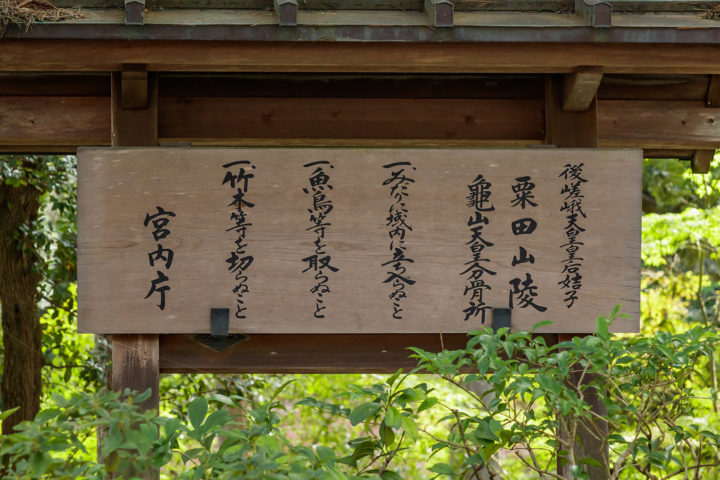 後嵯峨天皇皇后姞子
粟田山陵
龜山天皇分骨所
一、みだりに域内に立ち入らぬこと
一、魚鳥等を取らぬこと
一、竹木等を切らぬこと
宮内庁